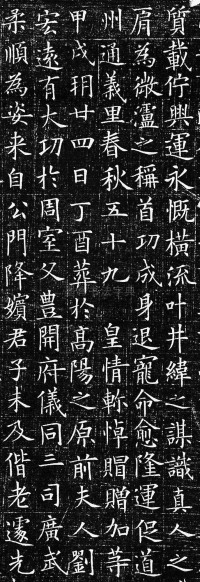 質載佇興運永慨橫流叶井緯之謀識真人之
肩為微瀘之稱首功成身退寵命愈隆運促道
州通義里春秋五十九　皇情軫悼賵贈加等
甲戌玥廿四日丁酉葬於高陽之原前夫人劉
宏遠有大功於周室父豊開府儀同三司廣武
柔順為姿来自公門降嬪君子未及偕老遽先